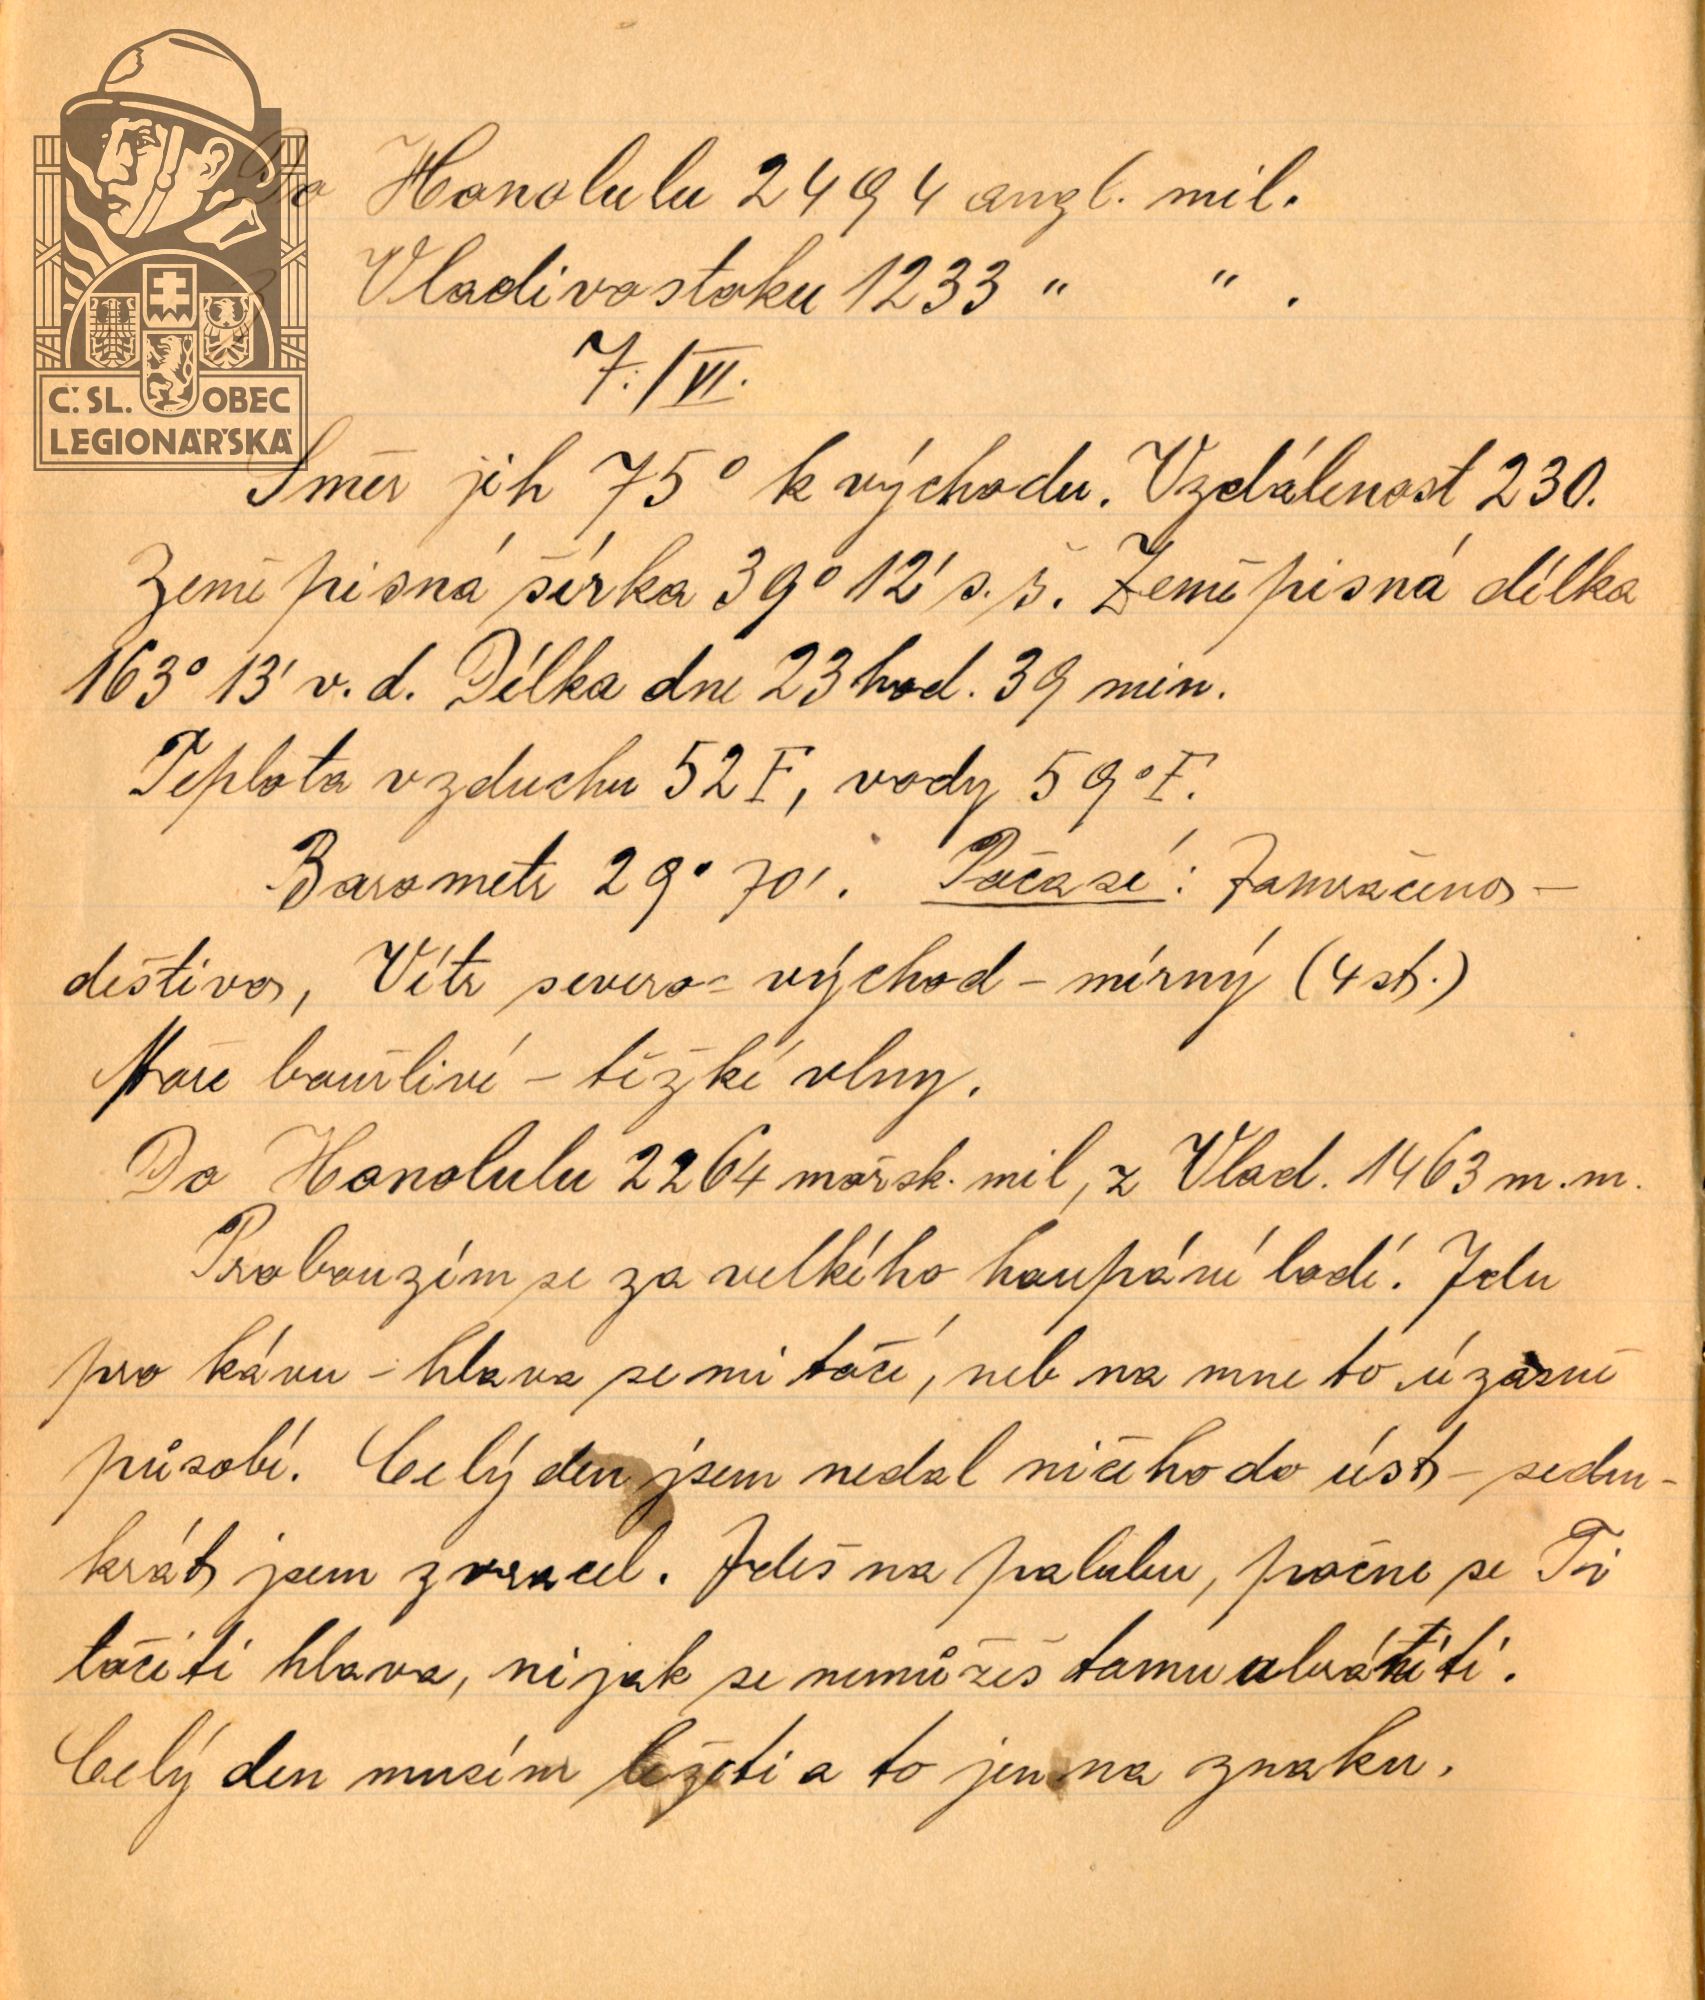 Do Honolulu 2494 angl. mil.
Z Vladivostoku 1233 " " .
7./VI.
Č.SL. OBEC
LEGIONÁŘSKÁ
Směr jih 75° k východu. Vzdálenost 230.
Zeměpisná šírka 39° 12' s. š. Zeměpisná délka
163° 13' v. d. Délka dne 23 hod. 39 min.
Teplota vzduchu 52 F, vody 59° F.
Barometr 29° 70'. Počasí: Zamračeno -
deštivo, Vítr severo= východ - mírný (4 st.)
Moře bouřlivé - těžké vlny.
Do Honolulu 2264 mořsk. mil, z Vlad. 1463 m. m.
Probouzím se za velkého houpání lodí. Jdu
pro kávu - hlava se mi točí, neb na mne to úžasně
působí. Celý den jsem nedal ničeho do úst - sedm-
krát jsem zvracel. Jdeš na palubu, počne se Ti
točiti hlava, nijak se nemůžeš tomu ubrániti.
Celý den musím ležeti a to jen na znaku.